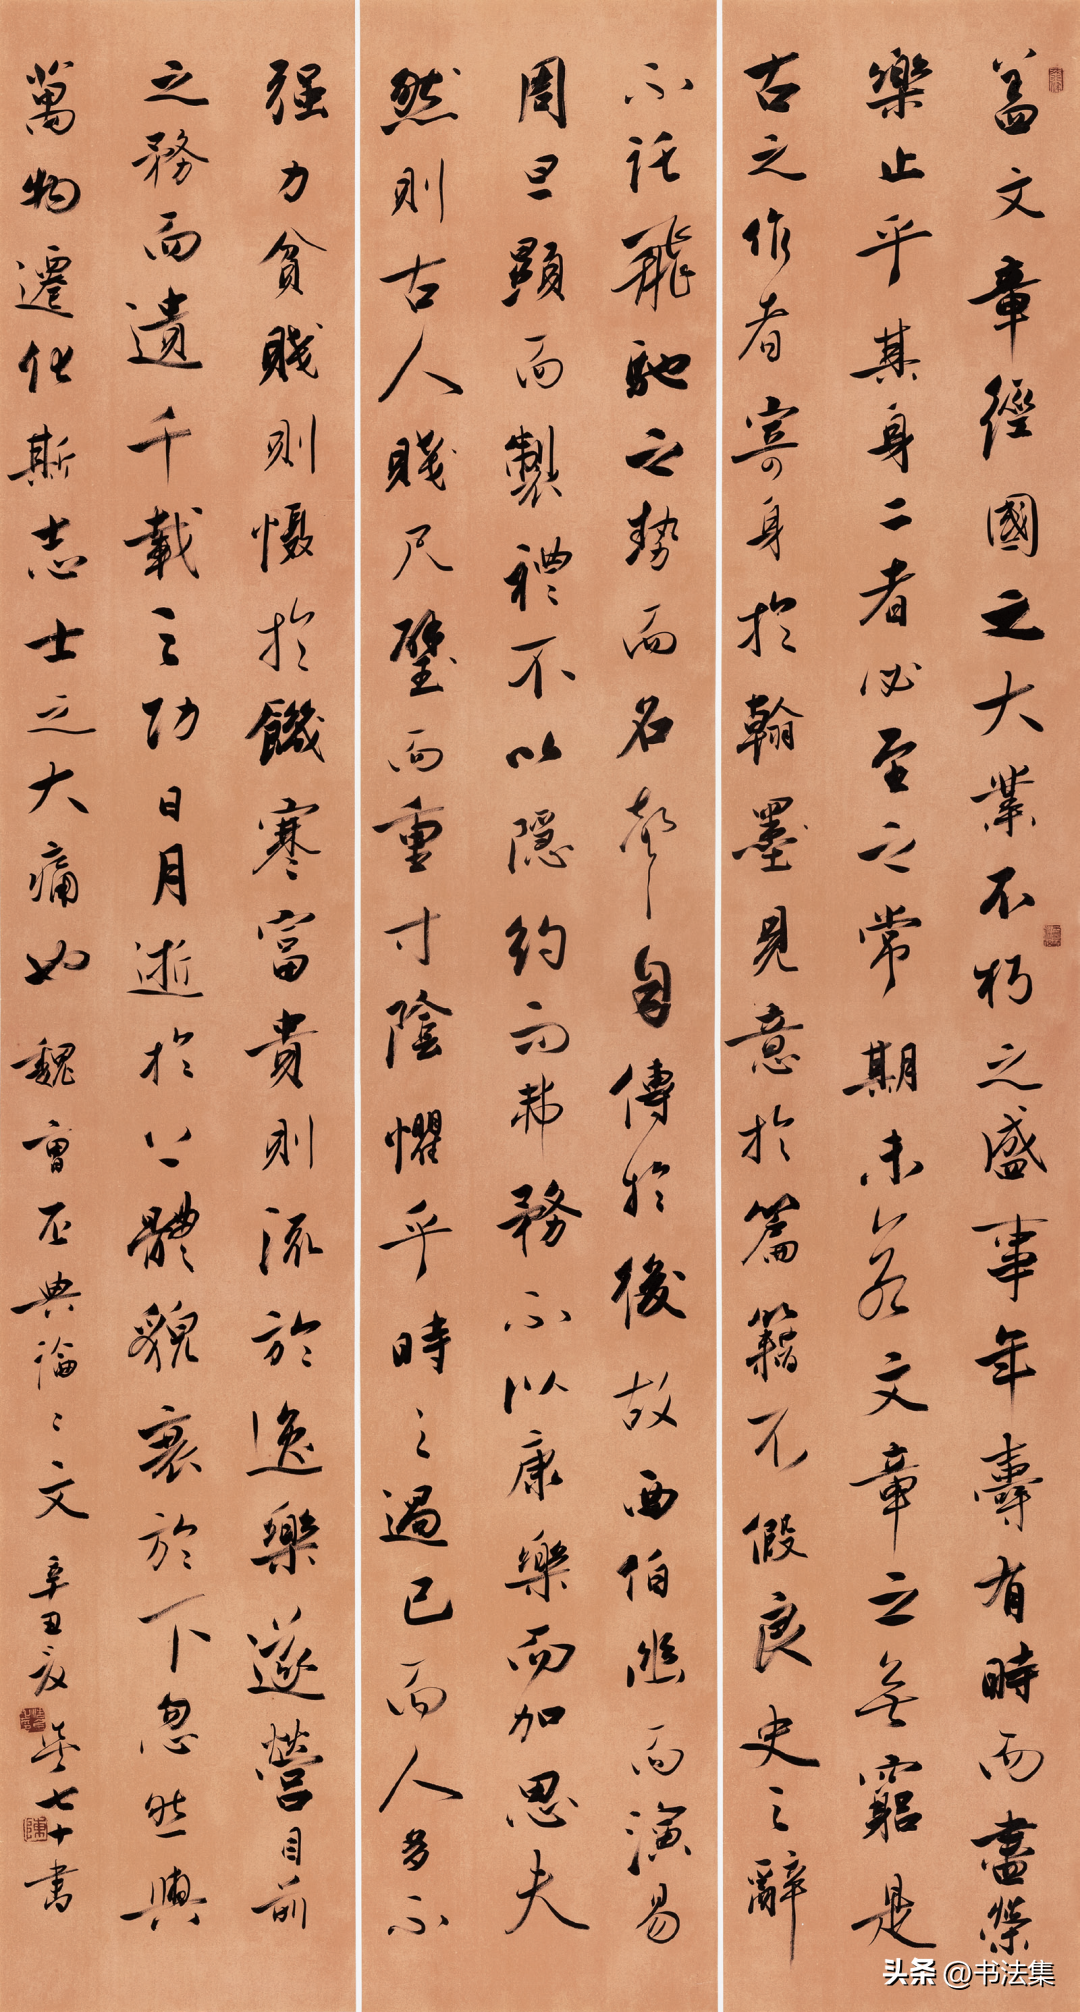 盖文章經國之大業不朽之盛事年壽有時而盡榮
樂止乎其身二者必至之常期未若文章之無窮是
古之作者寄身於翰墨見意於篇籍不假良史之辭
不託飛馳之勢而名聲自傳於後故西伯幽而演易
周旦顯而製禮不以隱約而弗務不以康樂而加思夫
然則古人賤尺璧而重寸陰懼乎時之過已而人多不
强力貧賤則懾於饑寒富貴則流於逸樂遂營目前
之務而遺千載之功日月逝於上體貌衰於下忽然與
萬物遷化斯志士之大痛也 魏曹丕典論〻文 辛丑夏 七十書
头条 @书法集